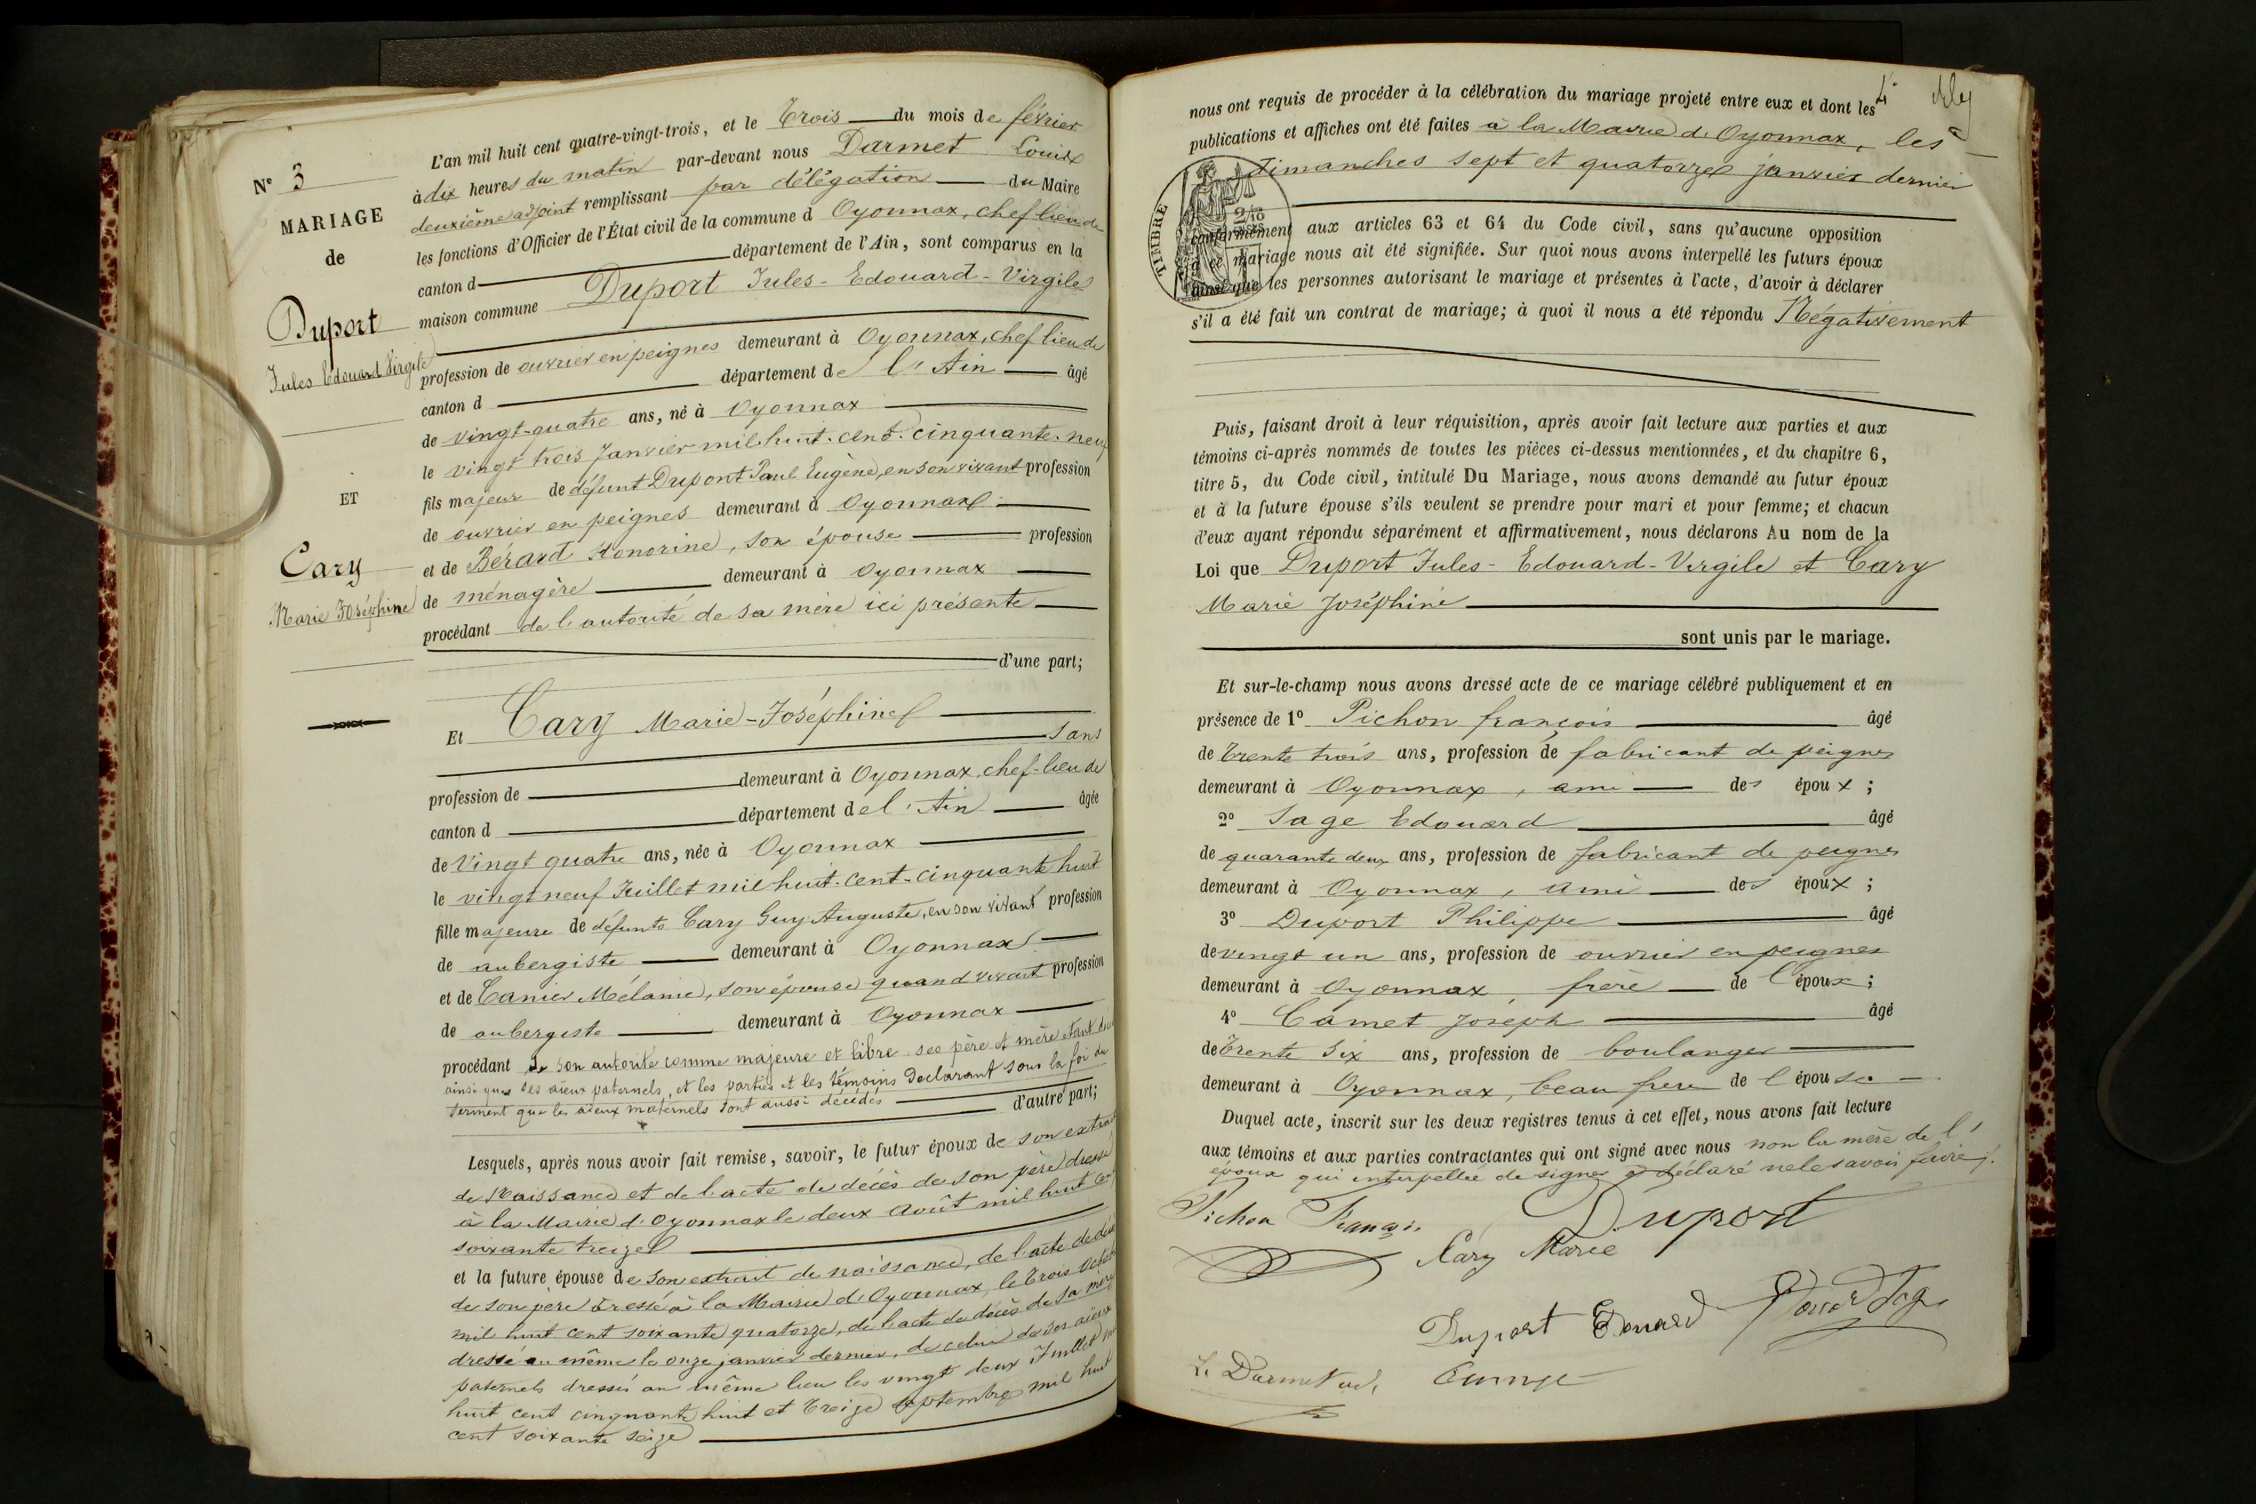 N° 3
MARIAGE
de
Duport
Jules Edouard Virgile
ET
Cary
Marie Joséphine
L'an mil huit cent quatre-vingt-trois, et le Trois du mois de février
à dix heures du matin par-devant nous Darmet Louis
deuxième adjoint remplissant par délégation du Maire
les fonctions d'Officier de l'État civil de la commune d Oyonnax, chef lieu de
canton d département de l'Ain, sont comparus en la
maison commune Duport Jules-Edouard-Virgile
profession de ouvrier en peignes demeurant à Oyonnax, chef lieu de
canton d département de l'Ain âgé
de vingt-quatre ans, né à Oyonnax
le vingt trois Janvier mil huit cent cinquante-neuf
fils majeur de défunt Duport Paul Eugène, en son vivant profession
de ouvrier en peignes demeurant à Oyonnax
et de Bérard Honorine, son épouse profession
de ménagère demeurant à Oyonnax
procédant de l'autorité de sa mère ici présente
d'une part;
Et Cary Marie-Joséphine
sans
profession de demeurant à Oyonnax, chef-lieu de
canton d département de l'Ain âgée
de Vingt quatre ans, née à Oyonnax
le vingt neuf Juillet mil huit-cent-cinquante huit
fille majeure de défunts Cary Guy Auguste, en son vivant profession
de aubergiste demeurant à Oyonnax
et de Canier Mélanie, son épouse quand vivait profession
de aubergiste demeurant à Oyonnax
procédant de son autorité comme majeure et libre ses père et mère étant
ainsi que ses aïeux paternels, et les parties et les témoins Déclarant sous la foi du
serment que les aïeux maternels sont aussi décédés
d'autre part;
Lesquels, après nous avoir fait remise, savoir, le futur époux de son extrait
de Naissance et de l'acte de décès de son père dressé
à la Mairie d'Oyonnax le deux Août mil huit cent
soixante treize
et la future épouse de son extrait de naissance, de l'acte de décès
de son père dressé à la Mairie d'Oyonnax, le trois
mil huit cent soixante quatorze, de l'acte de décès de sa mère
dressé au même le onze janvier dernier, de celui de ses aïeux
paternels dressés au même lieu les vingt deux Juillet mil
huit cent cinquante huit et treize septembre mil huit
cent soixante seize
nous ont requis de procéder à la célébration du mariage projeté entre eux et dont les
publications et affiches ont été faites à la Mairie d'Oyonnax, les
Dimanches sept et quatorze janvier dernier
TIMBRE
conformément aux articles 63 et 64 du Code civil, sans qu'aucune opposition
à ce mariage nous ait été signifiée. Sur quoi nous avons interpellé les futurs époux
ainsi que les personnes autorisant le mariage et présentes à l'acte, d'avoir à déclarer
s'il a été fait un contrat de mariage; à quoi il nous a été répondu Négativement
Puis, faisant droit à leur réquisition, après avoir fait lecture aux parties et aux
témoins ci-après nommés de toutes les pièces ci-dessus mentionnées, et du chapitre 6,
titre 5, du Code civil, intitulé Du Mariage, nous avons demandé au futur époux
et à la future épouse s'ils veulent se prendre pour mari et pour femme; et chacun
d'eux ayant répondu séparément et affirmativement, nous déclarons Au nom de la
Loi que Duport Jules-Edouard-Virgile et Cary
Marie Joséphine
sont unis par le mariage.
Et sur-le-champ nous avons dressé acte de ce mariage célébré publiquement et en
présence de 1° Pichon françois âgé
de trente trois ans, profession de fabricant de peignes
demeurant à Oyonnax, ami des époux;
2° Sage Edouard âgé
de quarante deux ans, profession de fabricant de peignes
demeurant à Oyonnax, ami des époux;
3° Duport Philippe âgé
de vingt un ans, profession de ouvrier en peignes
demeurant à Oyonnax, frère de l'époux;
4° Camet Joseph âgé
de trente six ans, profession de boulanger
demeurant à Oyonnax, beau frère de l'épouse
Duquel acte, inscrit sur les deux registres tenus à cet effet, nous avons fait lecture
aux témoins et aux parties contractantes qui ont signé avec nous non la mère de l'
époux qui interpellée de signer a déclaré ne le savoir faire.
Pichon François
Duport
Cary Marie
Duport Edouard
L. Darmet adj.